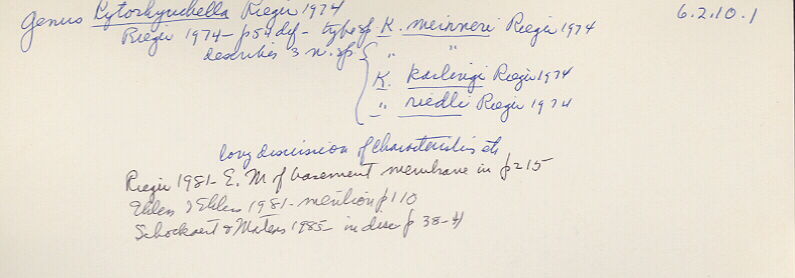 Genus Kytorhynchella Rieger 1974 6.2.10.1
Rieger 1974 - p54 def - type sp K. meixneri Rieger 1974
describes 3 n. sp { " "
K. karlingi Rieger 1974
" riedli Rieger 1974
long discussion of characteristics etc
Rieger 1981 - E. M of basement membrane in p215
Ehlers & Ehlers 1981 - mention p110
Schockaert & Martens 1985 - in disc p 38-41